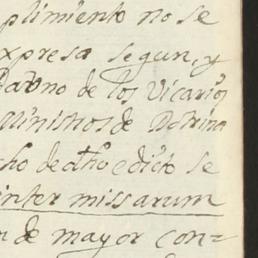 plimiento no se
xpresa segun, y
de los Vicarios
Ministros de Dotrina
cho de dho edicto se
inter missarum
de mayor con=